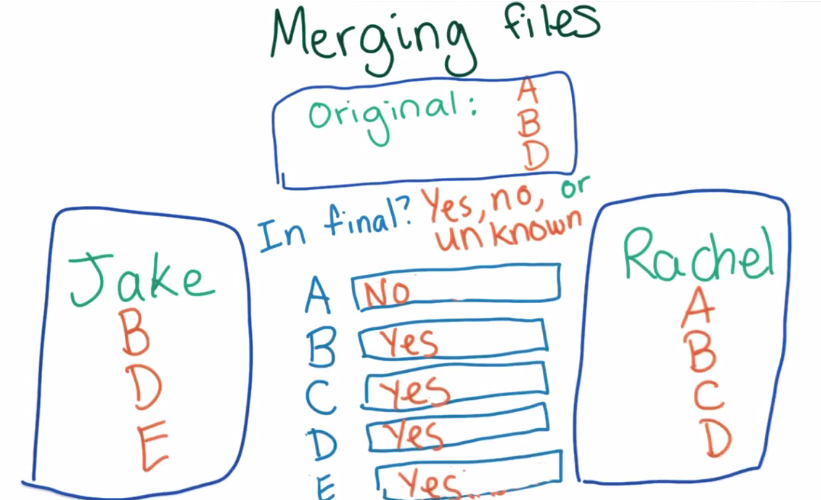 Merging files
Original: A
B
D
In final? Yes, no, or
unknown
Jake
B
D
E
A No
B Yes
C Yes
D Yes
E Yes...
Rachel
A
B
C
D